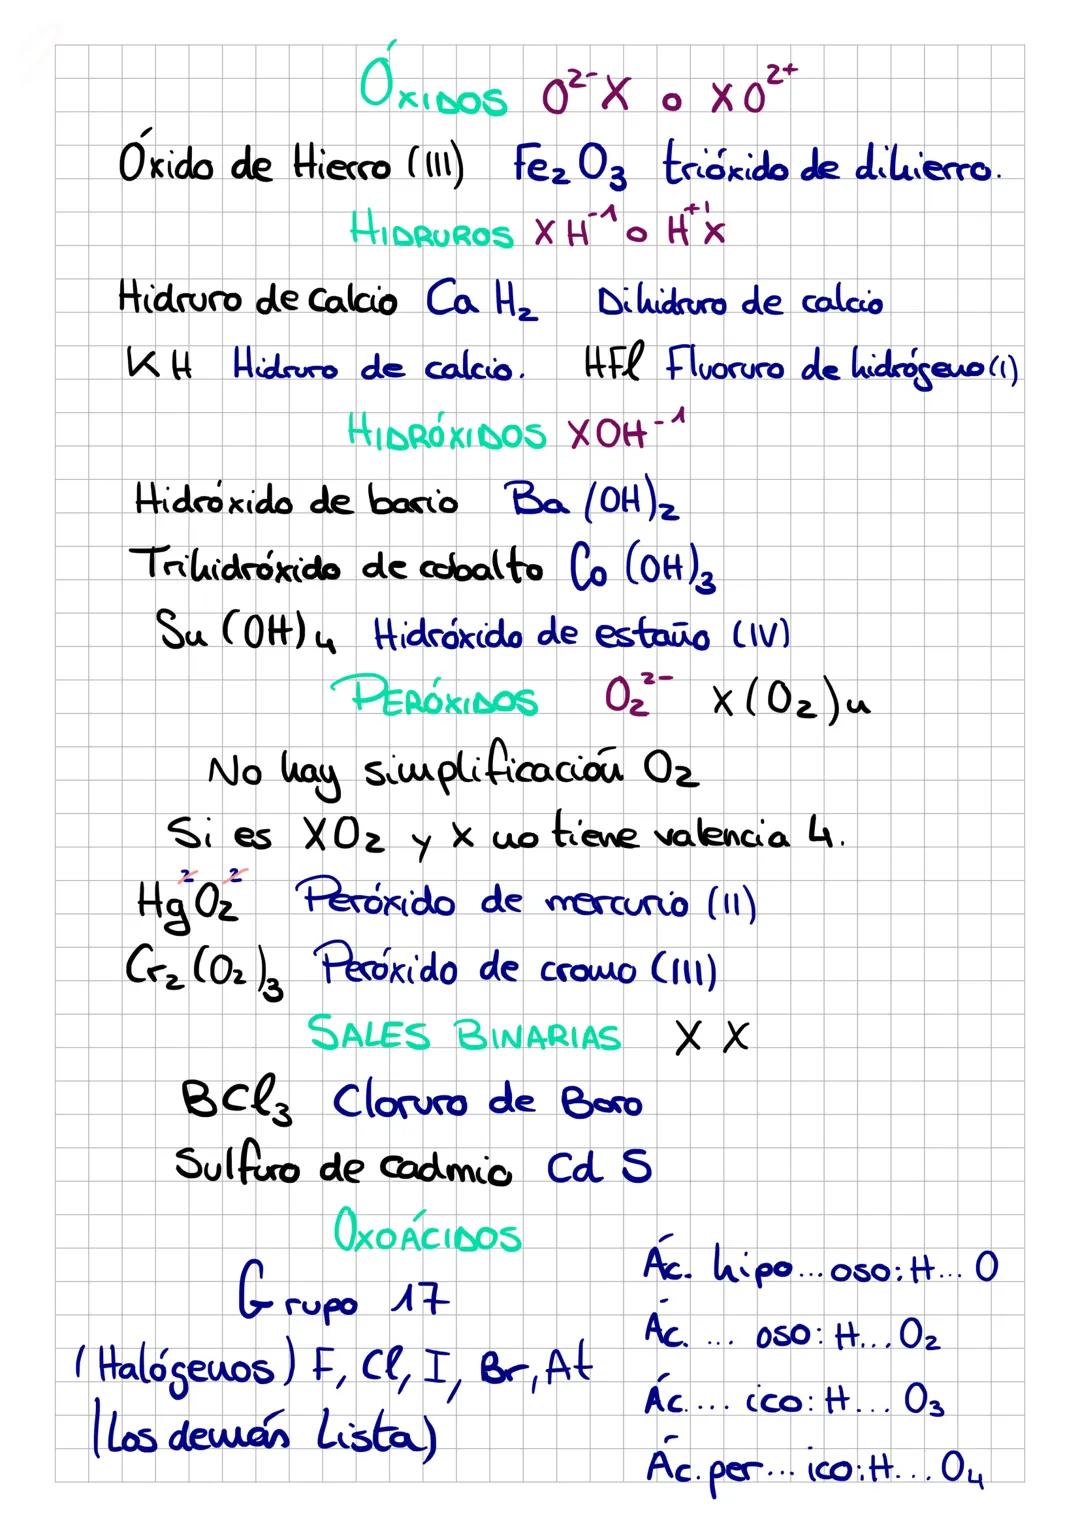 ÓXIDOS O²⁻X o XO²⁺
Óxido de Hierro (III) Fe₂O₃ trióxido de dihierro.
HIDRUROS XH⁻¹ o H⁺¹X
Hidruro de calcio CaH₂ Dihidruro de calcio
KH Hidruro de calcio. HFl Fluoruro de hidrógeno (1)
HIDRÓXIDOS XOH⁻¹
Hidróxido de bario Ba(OH)₂
Trihidróxido de cobalto Co(OH)₃
Sn(OH)₄ Hidróxido de estaño (IV)
PERÓXIDOS O₂²⁻ X(O₂)n
No hay simplificación O₂
Si es XO₂ y X no tiene valencia 4.
Hg²O₂² Peróxido de mercurio (II)
Cr₂(O₂)₃ Peróxido de cromo (III)
SALES BINARIAS X X
BCl₃ Cloruro de Boro
Sulfuro de cadmio CdS
OXOÁCIDOS
Grupo 17
(Halógenos) F, Cl, I, Br, At
(Los demás Lista)
Ác. hipo...oso: H... O
Ác. ... oso: H...O₂
Ác.... ico: H... O₃
Ác. per... ico: H... O₄